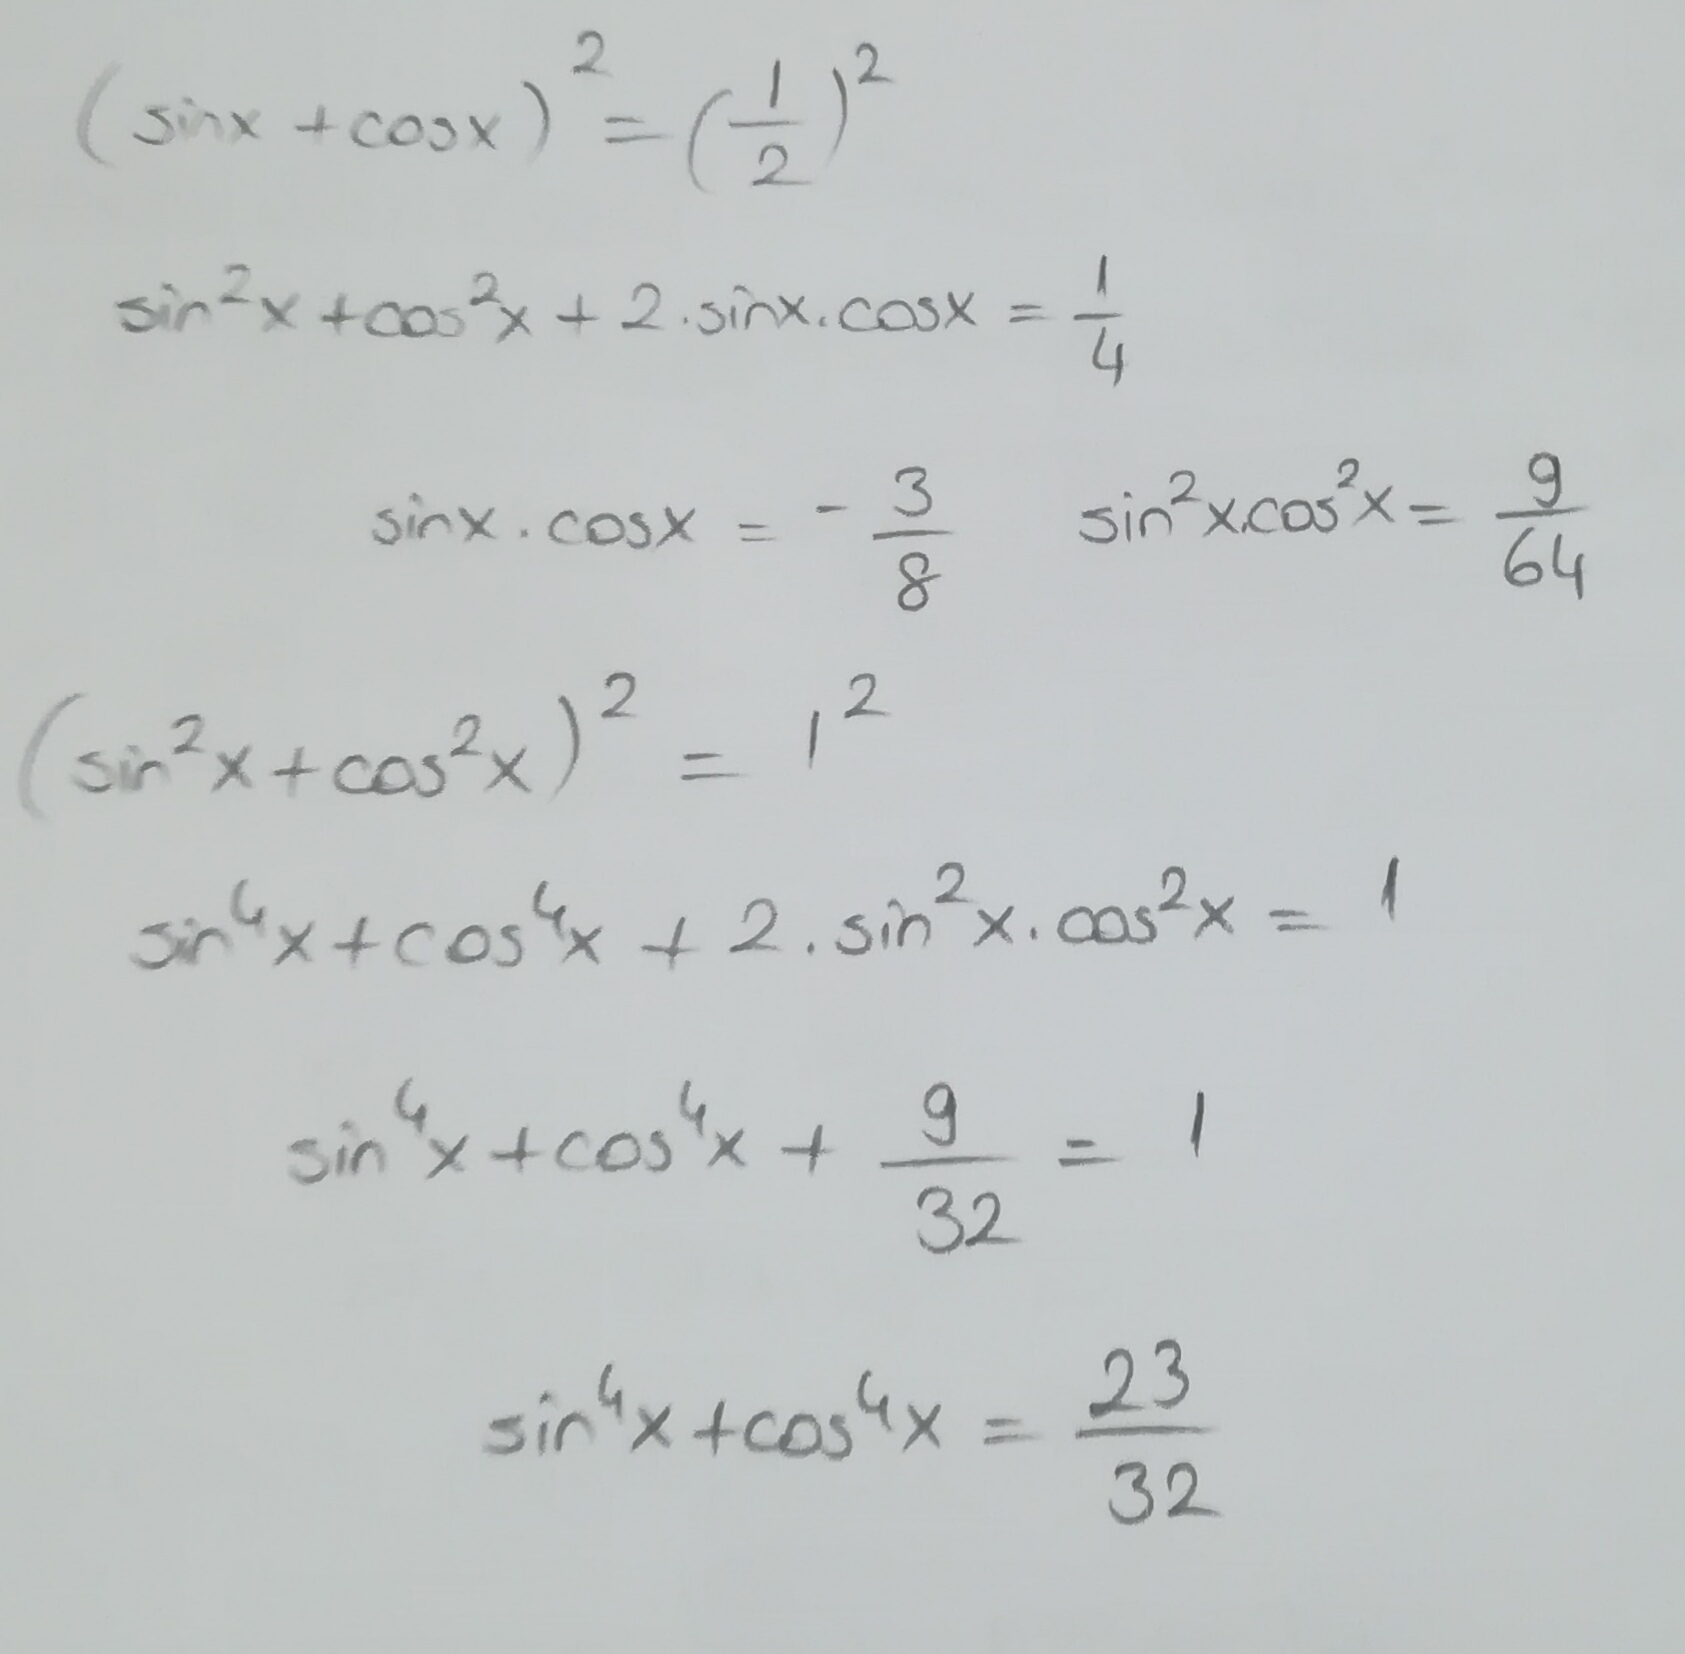 (sinx + cosx)² = (1/2)²
sin²x + cos²x + 2.sinx.cosx = 1/4
sinx.cosx = - 3/8 sin²x.cos²x = 9/64
(sin²x + cos²x)² = 1²
sin⁴x + cos⁴x + 2.sin²x.cos²x = 1
sin⁴x + cos⁴x + 9/32 = 1
sin⁴x + cos⁴x = 23/32